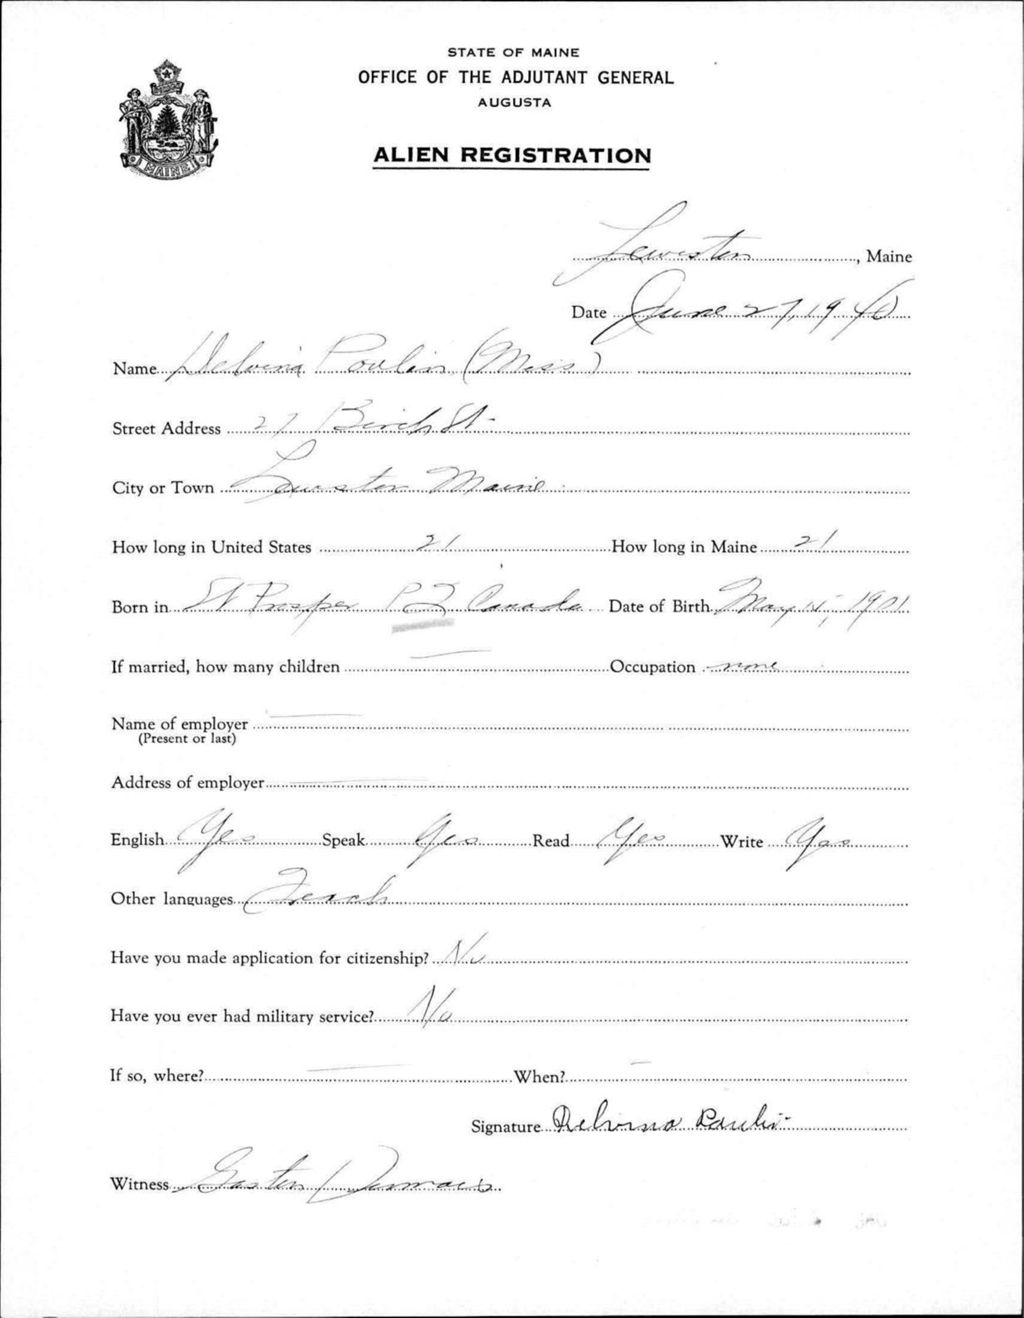 STATE OF MAINE
OFFICE OF THE ADJUTANT GENERAL
AUGUSTA
ALIEN REGISTRATION
MAINE
Lewiston, Maine
Date June 27, 1940
Name Delvina Poulin (Miss)
Street Address 27 Birch St.
City or Town Lewiston Maine
How long in United States 21 How long in Maine 21
Born in St Prosper P Q Canada Date of Birth May 15, 1901
If married, how many children — Occupation none
Name of employer —
(Present or last)
Address of employer —
English Yes Speak Yes Read Yes Write Yes
Other languages French
Have you made application for citizenship? No
Have you ever had military service? No
If so, where? — When? —
Signature Delvina Poulin
Witness Gaston